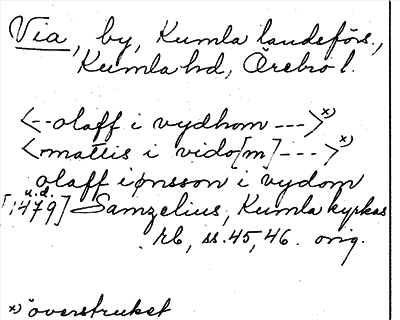 Via, by, Kumla landsförs.,
Kumla hd, Örebro l.
<--olaff i vydhom --->x)
<mattis i vido[m]--->x)
olaff iønsson i vydom
u.d.
[1479] Samzelius, Kumla kyrkas
rb, ss. 45, 46. orig.
x) överstruket